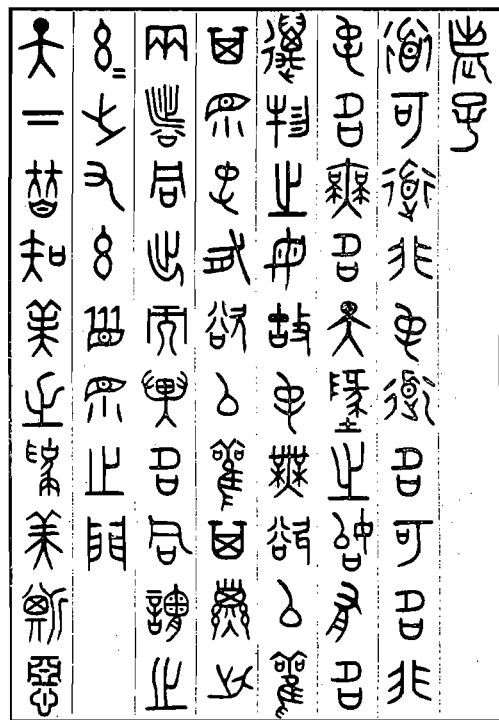 老子
道可道非恆道名可名非
恆名無名天地之始有名
萬物之母故恆無欲以觀
其眇恆有欲以觀其徼此
兩者同出而異名同謂之
玄=之又玄眾眇之門
天下皆知美之為美斯惡